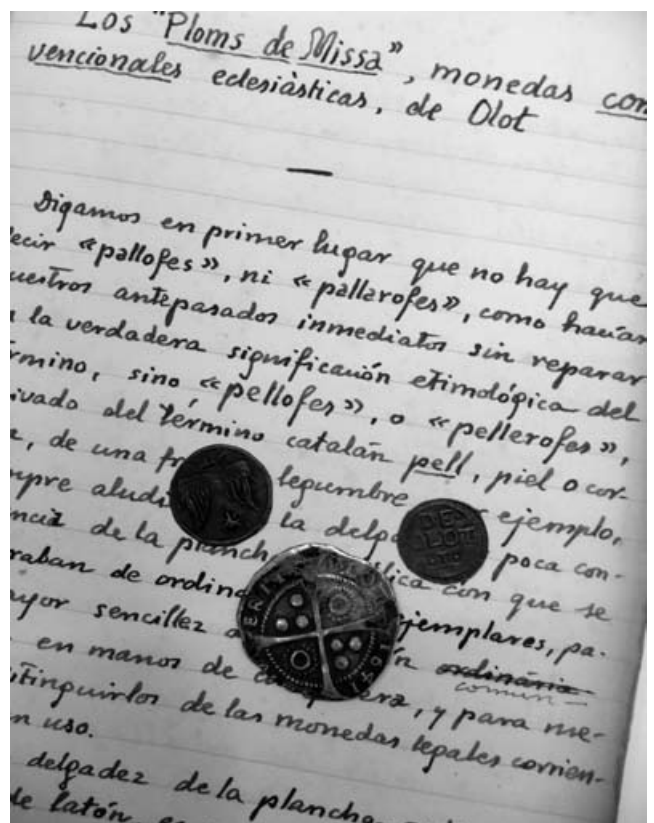 Los "Ploms de Missa", monedas con
vencionales eclesiàsticas, de Olot
Digamos en primer lugar que no hay que
ecir «pallofes», ni «pallarofes», como hacían
uestros antepasados inmediatos sin reparar
la verdadera significación etimológica del
rmino, sino «pellofes», o «pellerofes»,
ivado del término catalán pell, piel o cor-
, de una legumbre ejemplo,
mpre aludi la delg poca con-
ncia de la plancha lica con que se
raban de ordina jemplares, pa-
ayor sencillez ordinaria
común
en manos de era, y para me-
itinguirlos de las monedas legales corrien-
n uso.
delgadez de la plancha
de latón